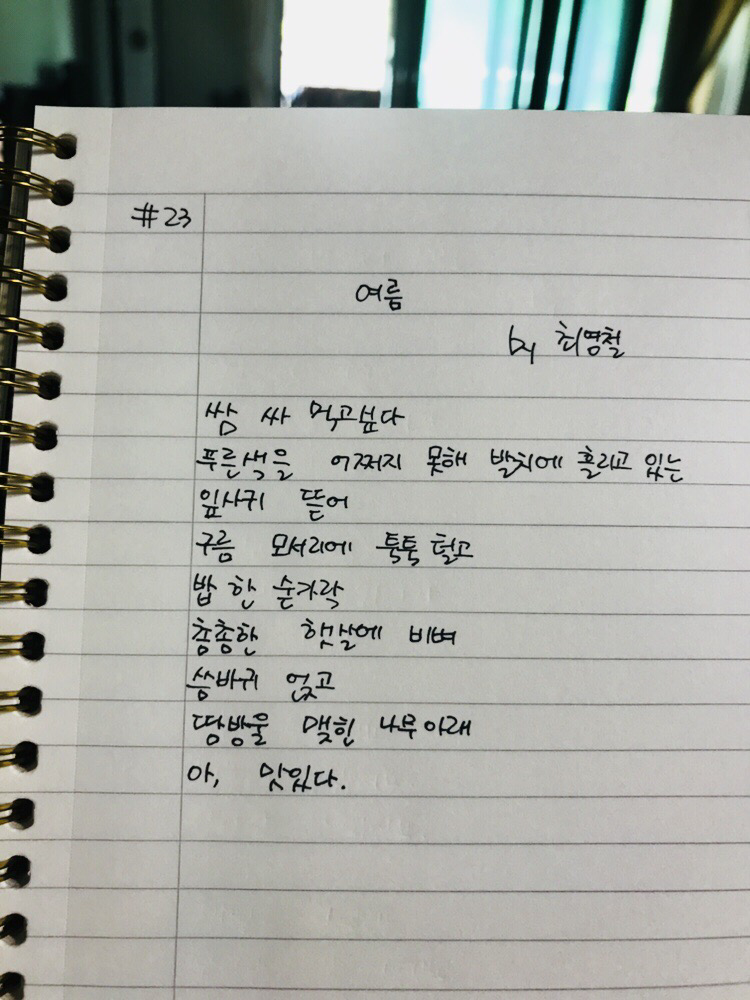 #23
여름
by 최영철
쌈 싸 먹고싶다
푸른색을 어쩌지 못해 발치에 흘리고 있는
잎사귀 뜯어
구름 모서리에 툭툭 털고
밥 한 숟가락
촘촘한 햇살에 비벼
씀바귀 얹고
땀방울 맺힌 나무아래
아, 맛있다.